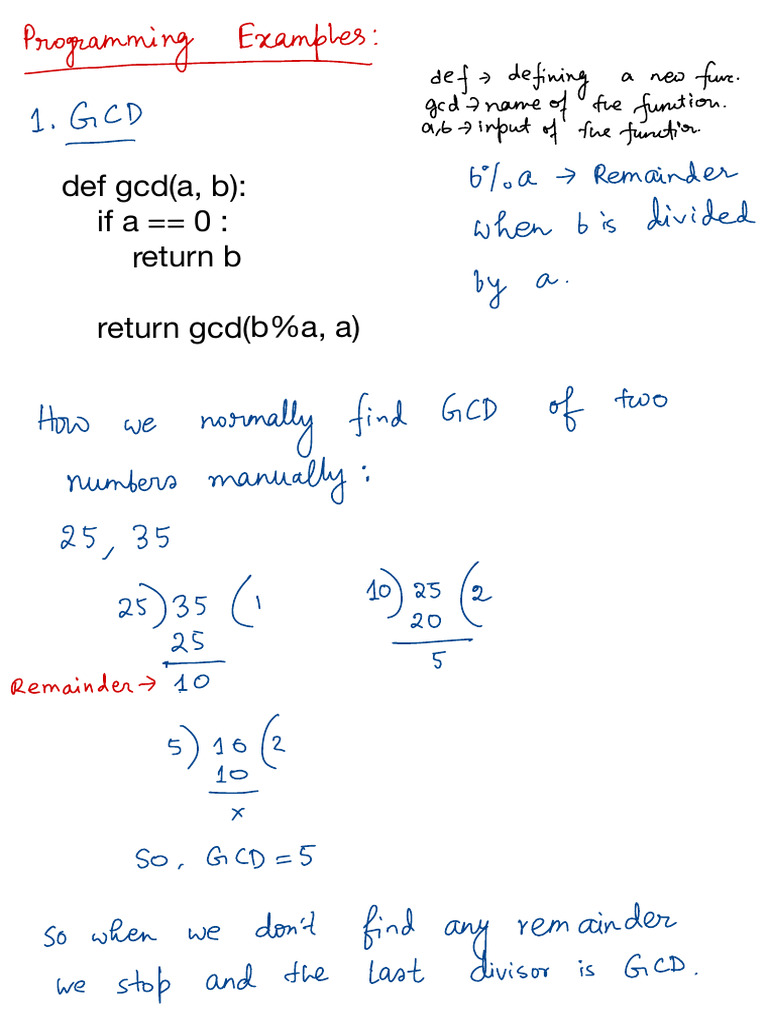 Programming Examples:
def → defining a new func.
gcd → name of the function.
a,b → input of the function.
1. GCD
b%a → Remainder
when b is divided
by a.
def gcd(a, b):
if a == 0 :
return b
return gcd(b%a, a)
How we normally find GCD of two
numbers manually:
25, 35
25) 35 (1
25
Remainder → 10
10) 25 (2
20
5
5) 10 (2
10
x
So, GCD = 5
So when we don't find any remainder
we stop and the last divisor is GCD.